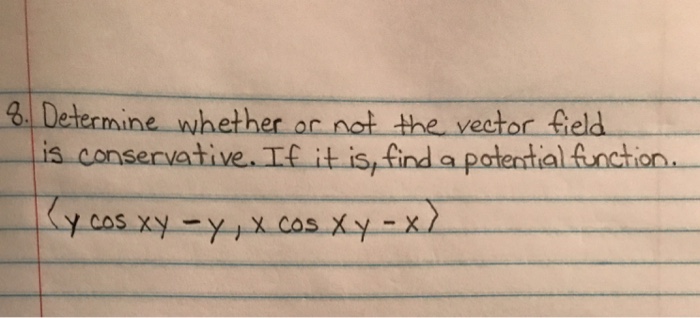 8. Determine whether or not the vector field
is conservative. If it is, find a potential function.
⟨y cos xy - y, x cos xy - x⟩